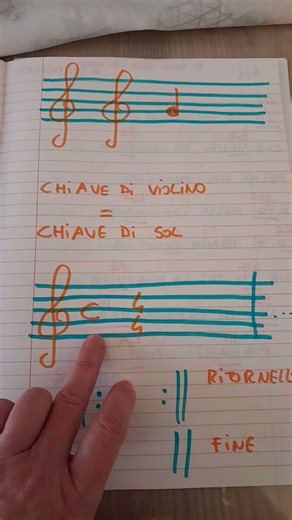 CHIAVE DI VIOLINO
=
CHIAVE DI SOL
C 4
4
...
RITORNELL
FINE